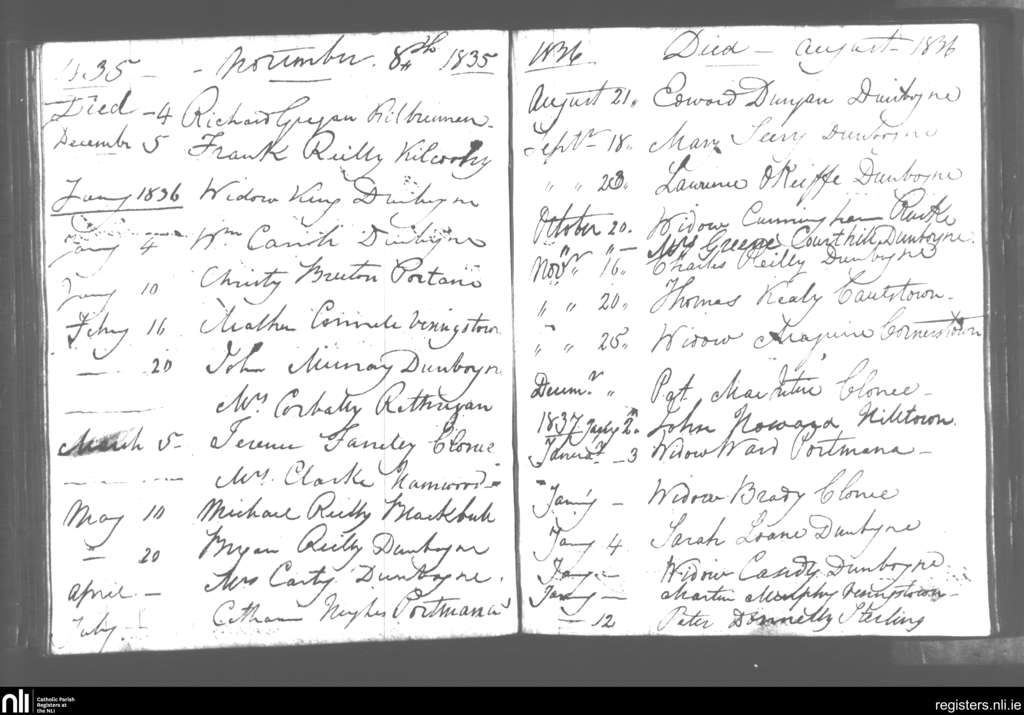 1835 - - November 8th 1835
Died - 4 Richard Gregan Kilbrennen.
December 5 Frank Reilly Kilcooly
Jany 1836 Widow King Dunboyne
Jany 4 Wm Dunboyne
Jany 10 Christy Bruton Portane
Feby 16 Connele Veningstown
— 20 John Murray Dunboyne
— Mrs Corbally Rathregan
March 5 - Terence Farreley Clonee
— Mrs. Clarke Hamwood -
May 10 Michael Reilly Blackbull
— 20 Bryan Reilly Dunboyne
April — Mrs Carty Dunboyne.
July - Hughes Portmanna
1836 Died - August - 1836
August 21. Edward Dungan Dunboyne
Septr 18. Mary Seery Dunboyne
" " 23. Laurence O'Keiffe Dunboyne
October 20. Widow Cunningham Ruske
" " - Mrs Greene Courthill Dunboyne.
Novr " 16. Charles Reilly Dunboyne
" " 20. Thomas Kealy Caulstown -
" " 25. Widow Cornerstown
Decemr " Pat Clonee -
1837 Jany 2. John Howard Milltown.
- 3 Widow Ward Portmana -
Jany - Widow Brady Clonee
Jany 4 Sarah Loane Dunboyne
Jany - Widow Casidy Dunboyne
Jany - Martin Murphy Veningstown -
— 12 Peter Donnelly Sterling
nli
Catholic Parish
Registers at
the NLI
registers.nli.ie